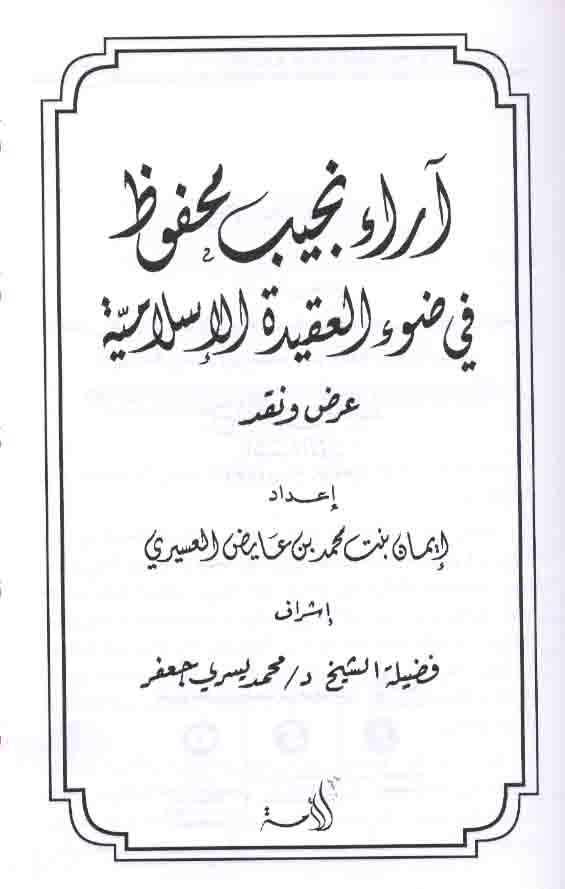 آراء نجيب محفوظ
في ضوء العقيدة الإسلاميّة
عرض ونقد
إعداد
إيمان بنت محمد بن عايض العسيري
إشراف
فضيلة الشيخ د/محمد يسري جعفر
الأمة